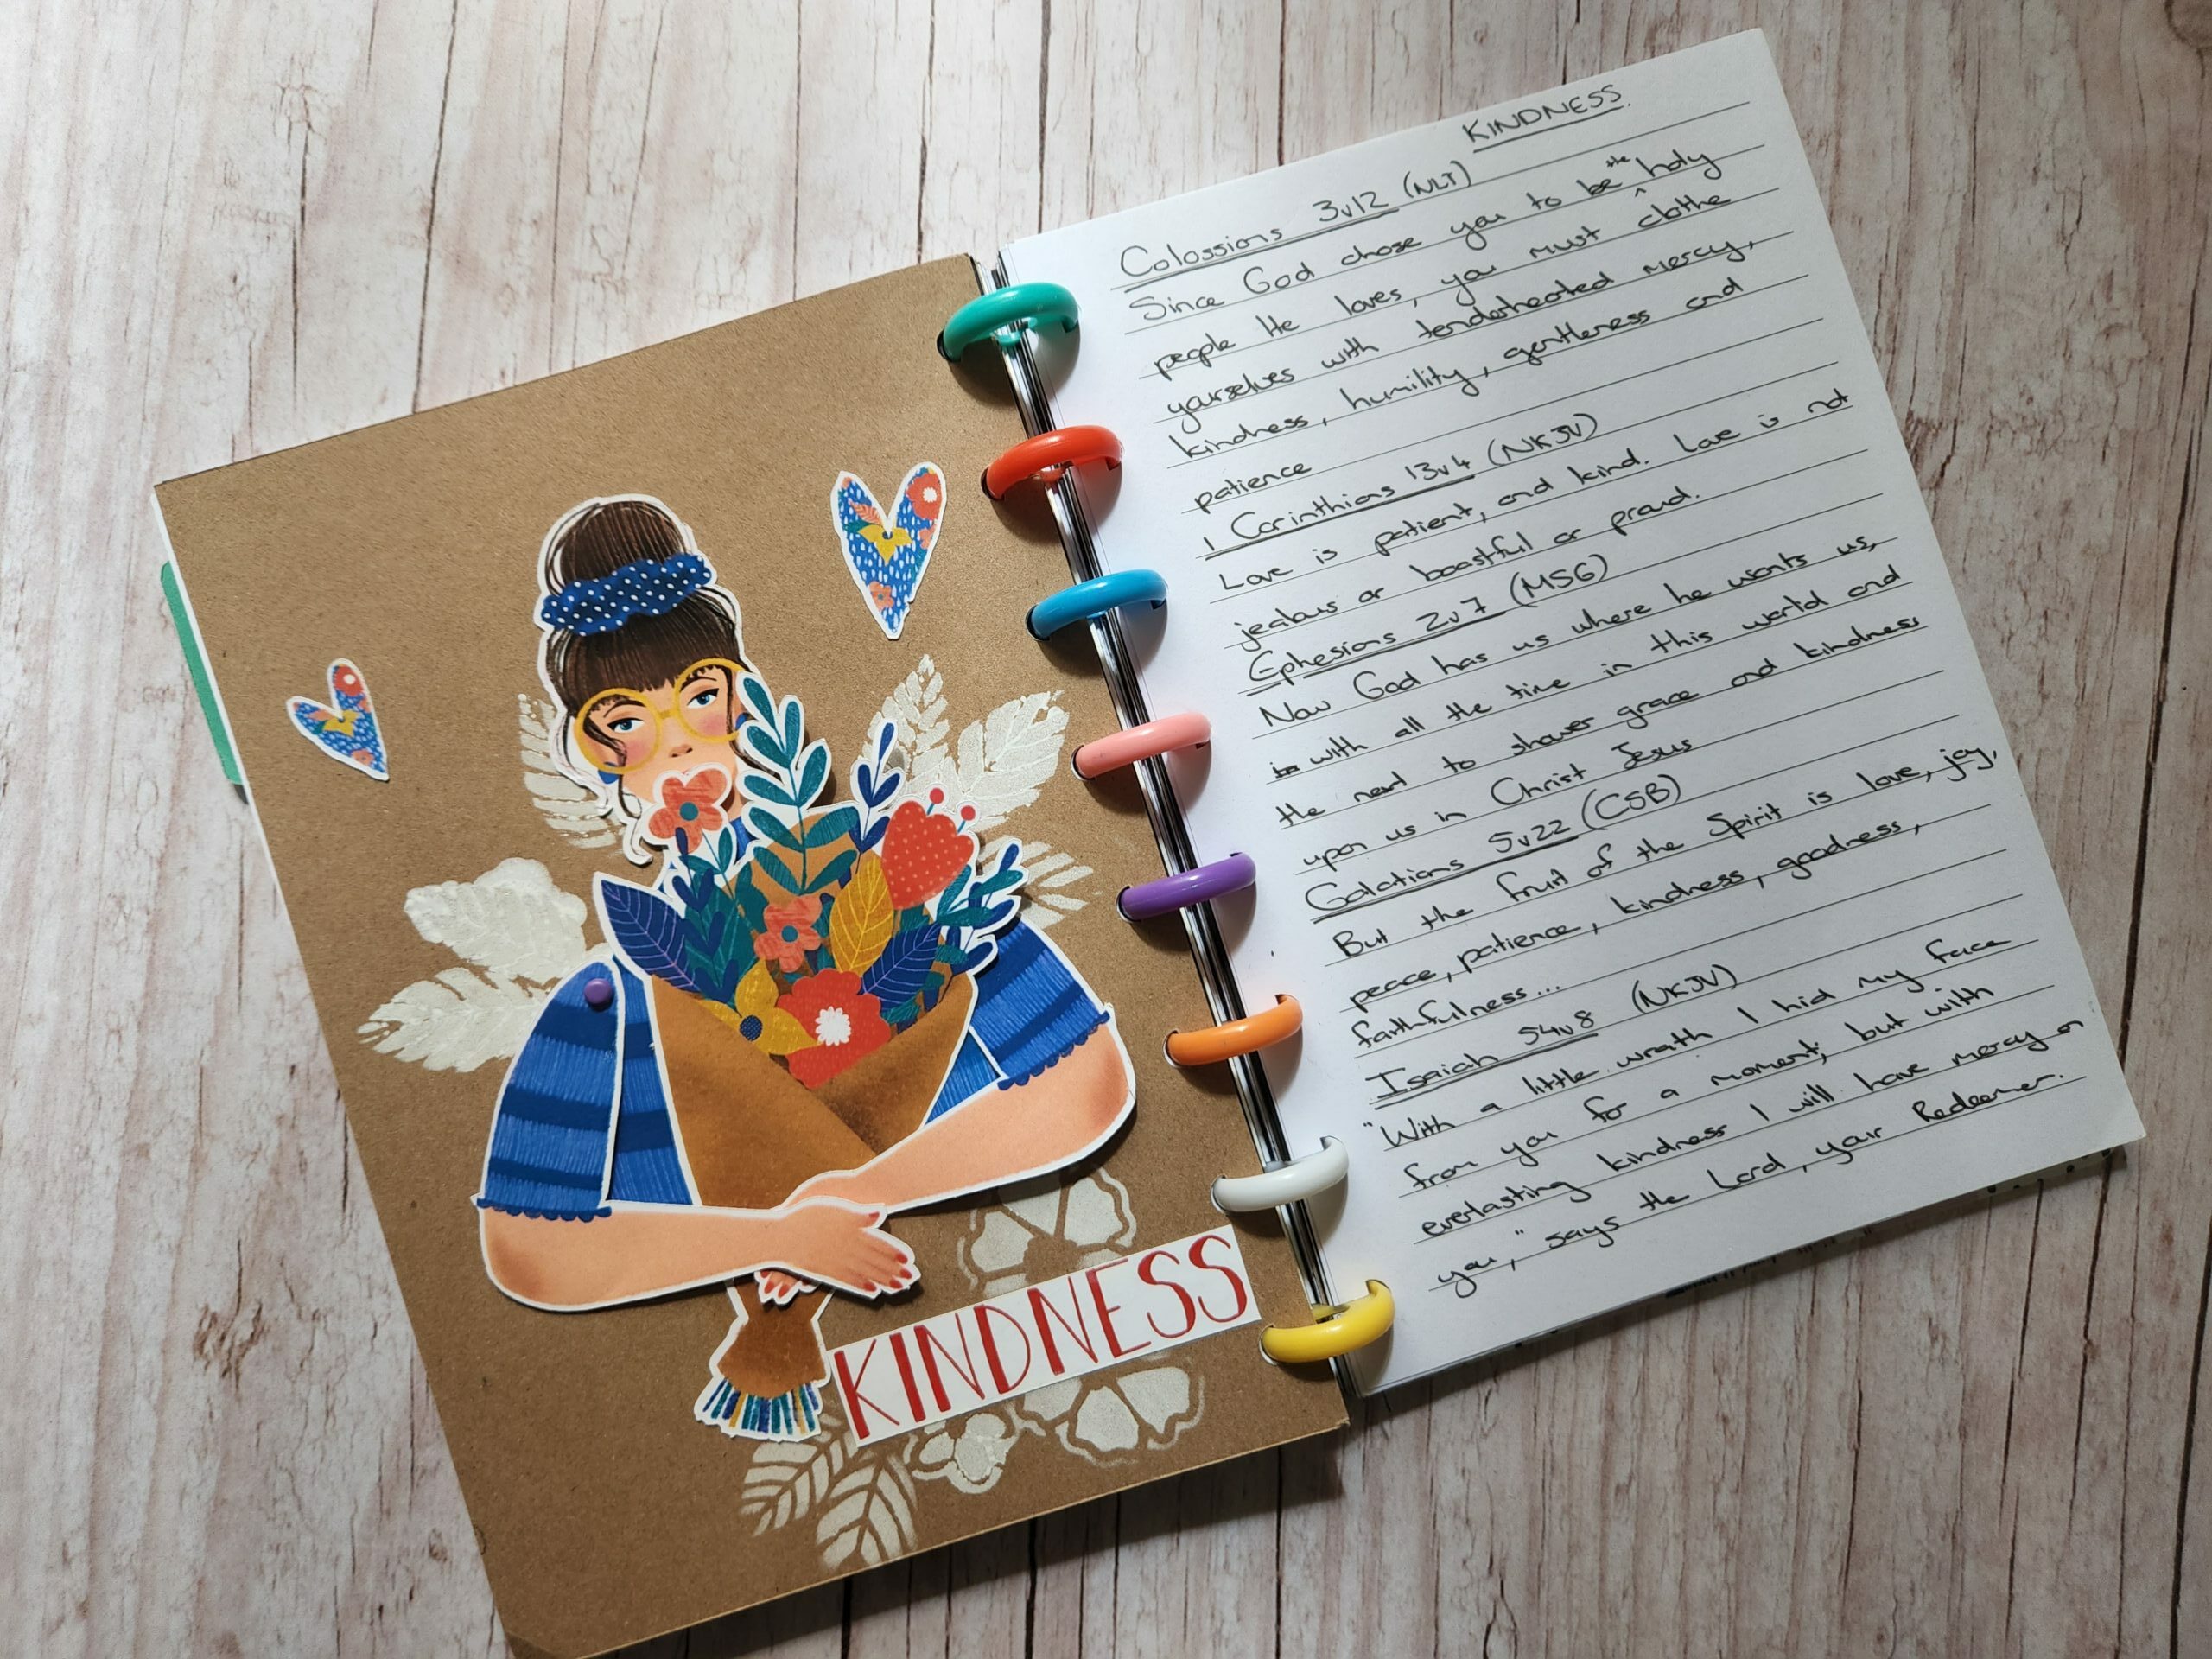 KINDNESS
KINDNESS.
Colossians 3v12 (NLT)
Since God chose you to be the holy
people He loves, you must clothe
yourselves with tenderheated mercy,
kindness, humility, gentleness and
patience
1 Corinthians 13v4 (NKJV)
Love is patient, and kind. Love is not
jealous or boastful or proud.
Ephesians 2v7 (MSG)
Now God has us where he wants us,
with all the time in this world and
the next to shower grace and kindness
upon us in Christ Jesus
Galatians 5v22 (CSB)
But the fruit of the Spirit is love, joy,
peace, patience, kindness, goodness,
faithfulness...
Isaiah 54v8 (NKJV)
"With a little wrath I hid my face
from you for a moment; but with
everlasting kindness I will have mercy on
you," says the Lord, your Redeemer.